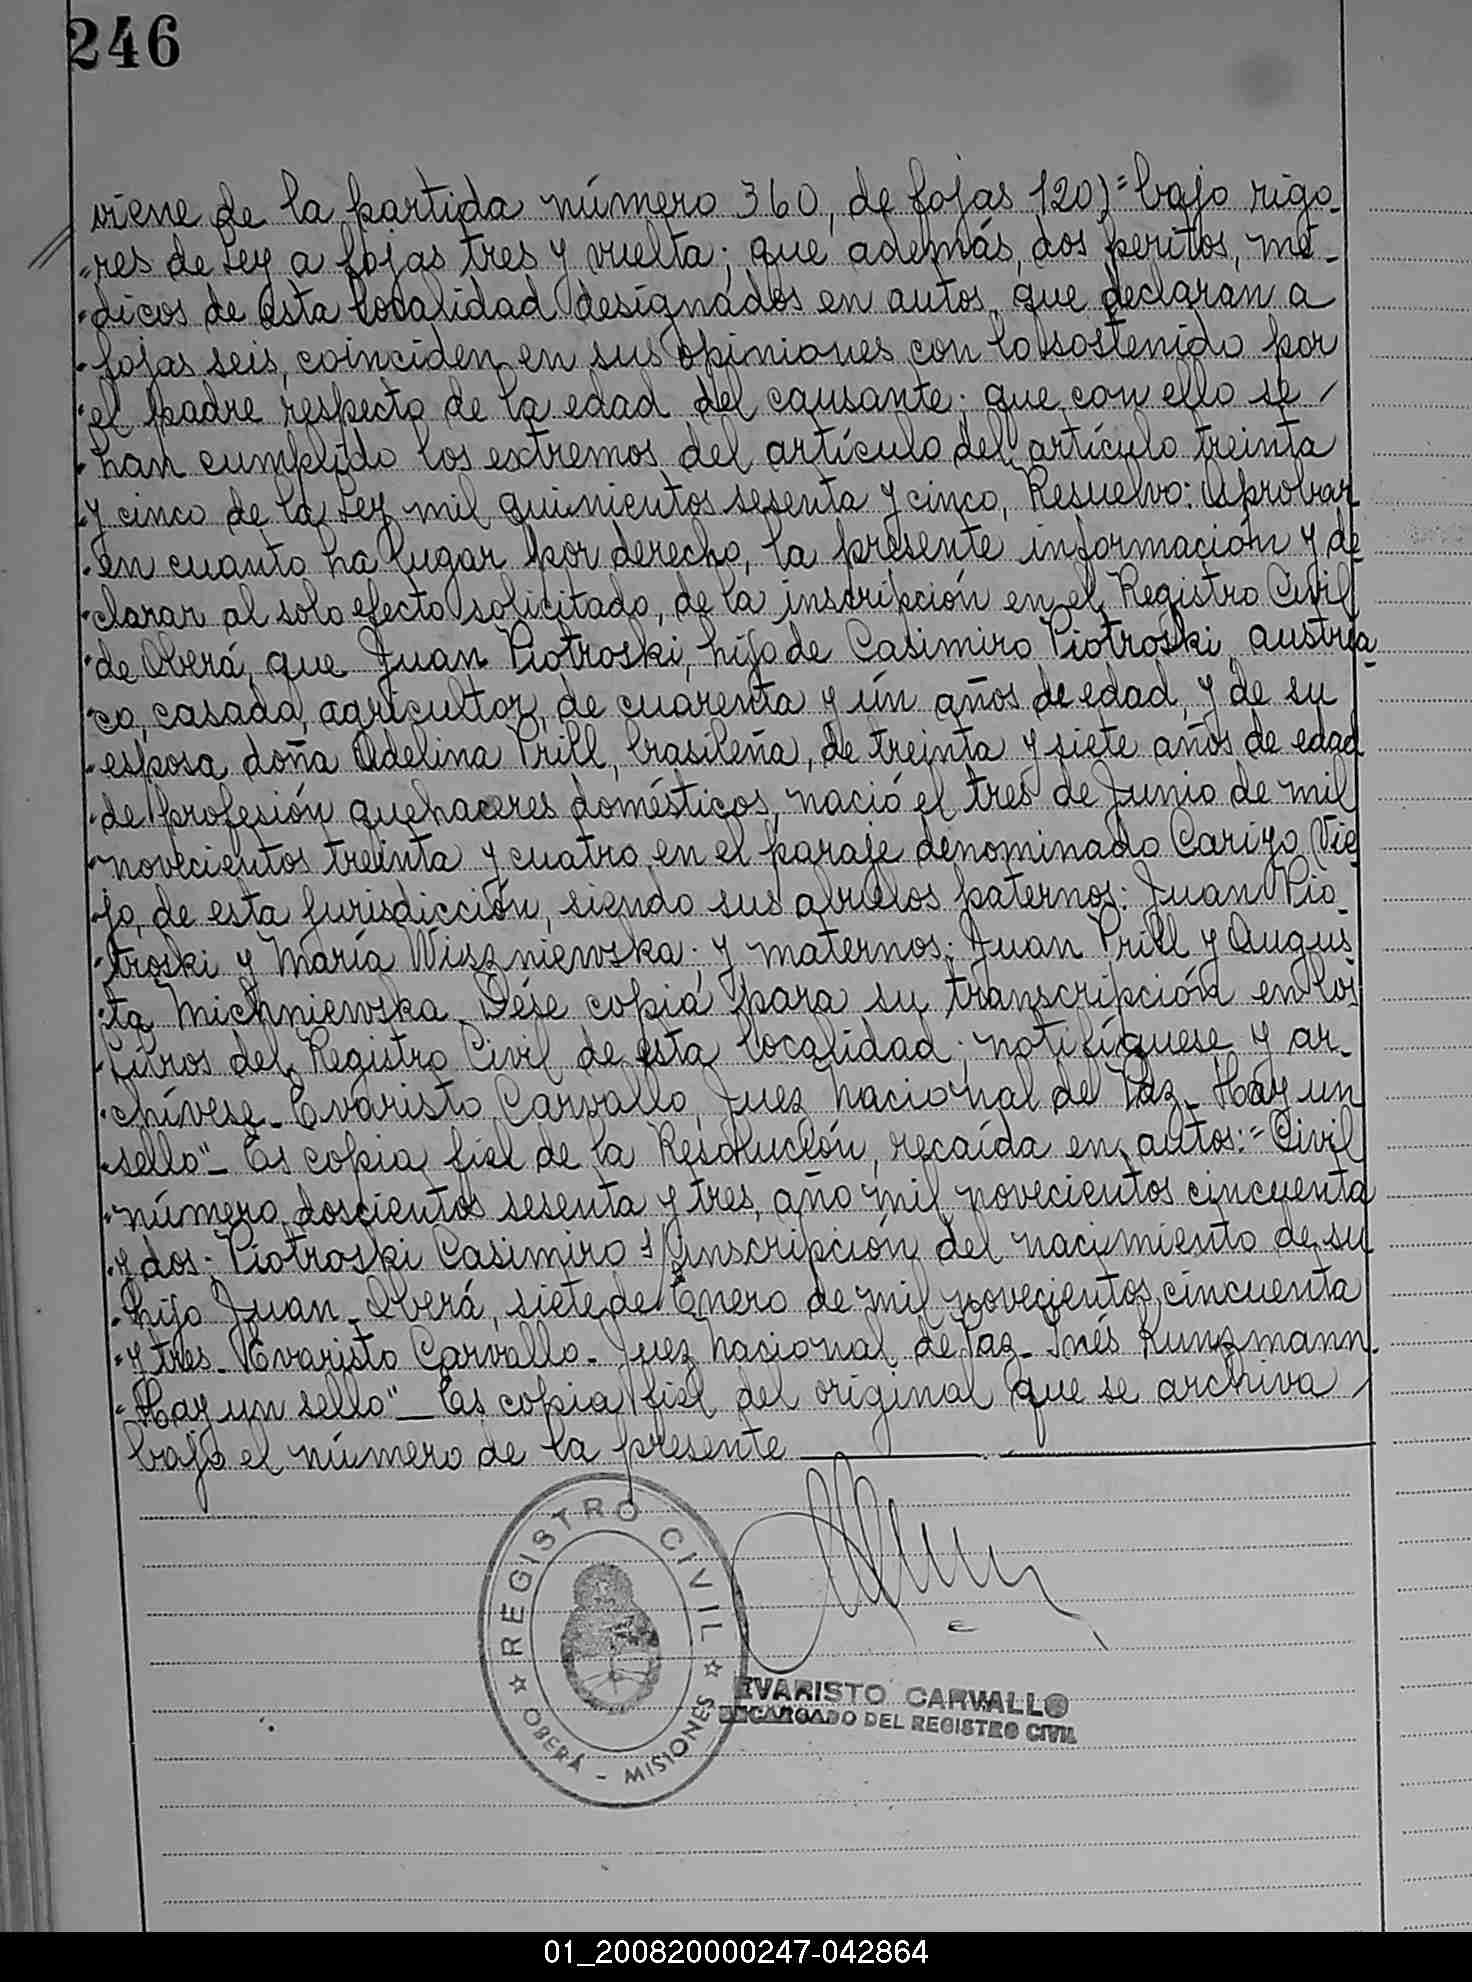 246
viene de la partida número 360, de fojas 120)="bajo rigo-
"res de Ley a fojas tres y vuelta; que además, dos peritos, mé-
"dicos de esta localidad designados en autos, que declaran a
"fojas seis, coinciden en sus opiniones con lo sostenido por
"el padre respecto de la edad del causante; que con ello se /
"han cumplido los extremos del artículo del artículo treinta
"y cinco de la Ley mil quinientos sesenta y cinco, Resuelvo: Aprobar
"en cuanto ha lugar por derecho, la presente información y de
"clarar al solo efecto solicitado, de la inscripción en el Registro Civil
"de Oberá, que Juan Piotroski, hijo de Casimiro Piotroski, austria-
"co, casado, agricultor, de cuarenta y ún años de edad, y de su
"esposa doña Adelina Prill, brasileña, de treinta y siete años de edad
"de profesión quehaceres domésticos, nació el tres de Junio de mil
"novecientos treinta y cuatro en el paraje denominado Cariyo Vie
"jo, de esta jurisdicción, siendo sus abuelos paternos: Juan Pio-
"troski y María Wiszniewska; y maternos: Juan Prill y Augus
"ta Michniewska. Dése copia para su transcripción en los
"Libros del Registro Civil de esta localidad; notifíquese y ar-
"chívese_ Evaristo Carvallo, Juez Nacional de Paz_ Hay un
"sello"_ Es copia fiel de la Resolución, recaída en autos:="Civil
"número doscientos sesenta y tres, año mil novecientos cincuenta
"y dos- Piotroski Casimiro s/ inscripción del nacimiento de su
"hijo Juan_ Oberá, siete de Enero de mil novecientos cincuenta
"y tres_ Evaristo Carvallo- Juez Nacional de Paz_ Inés Kunzmann_
"Hay un sello"_ Es copia fiel del original que se archiva /
bajo el número de la presente
REGISTRO CIVIL
OBERÁ - MISIONES
EVARISTO CARVALLO
ENCARGADO DEL REGISTRO CIVIL
01_200820000247-042864